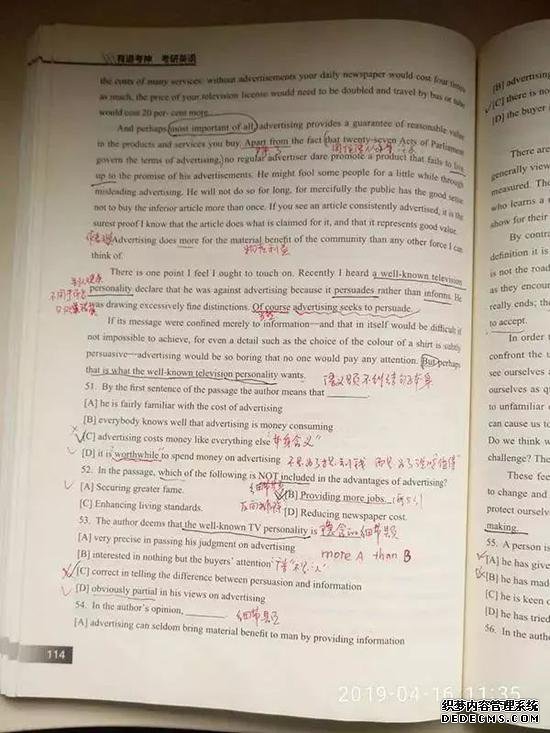 有道考神 考研英语
the costs of many services: without advertisements your daily newspaper would cost four times
as much, the price of your television license would need to be doubled and travel by bus or tube
would cost 20 per cent more.
And perhaps most important of all, advertising provides a guarantee of reasonable value
in the products and services you buy. Apart from the fact that twenty-seven Acts of Parliament
govern the terms of advertising, no regular advertiser dare promote a product that fails to live
up to the promise of his advertisements. He might fool some people for a little while through
misleading advertising. He will not do so for long, for mercifully the public has the good sense
not to buy the inferior article more than once. If you see an article consistently advertised, it is the
surest proof I know that the article does what is claimed for it, and that it represents good value.
Advertising does more for the material benefit of the community than any other force I can
物质利益
think of.
There is one point I feel I ought to touch on. Recently I heard a well-known television
personality declare that he was against advertising because it persuades rather than informs. He
was drawing excessively fine distinctions. Of course advertising seeks to persuade.
If its message were confined merely to information—and that in itself would be difficult if
not impossible to achieve, for even a detail such as the choice of the colour of a shirt is subtly
persuasive—advertising would be so boring that no one would pay any attention. But perhaps
that is what the well-known television personality wants.
51. By the first sentence of the passage the author means that
[A] he is fairly familiar with the cost of advertising
[B] everybody knows well that advertising is money consuming
[C] advertising costs money like everything else
[D] it is worthwhile to spend money on advertising
52. In the passage, which of the following is NOT included in the advantages of advertising?
[A] Securing greater fame. [B] Providing more jobs.
[C] Enhancing living standards. [D] Reducing newspaper cost.
53. The author deems that the well-known TV personality is
[A] very precise in passing his judgment on advertising more A than B
[B] interested in nothing but the buyers' attention
[C] correct in telling the difference between persuasion and information
[D] obviously partial in his views on advertising
54. In the author's opinion, 细节题
[A] advertising can seldom bring material benefit to man by providing information
114
[B] advertising
[C] there is no
[D] the buyer
There are
generally view
measured. The
who learns a
show for their
By contra
definition it is
is not the road
as they encour
really ends; the
to accept.
In order t
confront the u
see ourselves a
ourselves as q
to unfamiliar
can cause us to
Do we think w
challenge? The
These fee
to change and
protect ourselv
making.
55. A person is
[A] he has give
[B] he has mad
[C] he is keen o
[D] he has tried
56. In the autho
2019-04-16 11:35
织梦内容管理系统
DEDECMS.COM